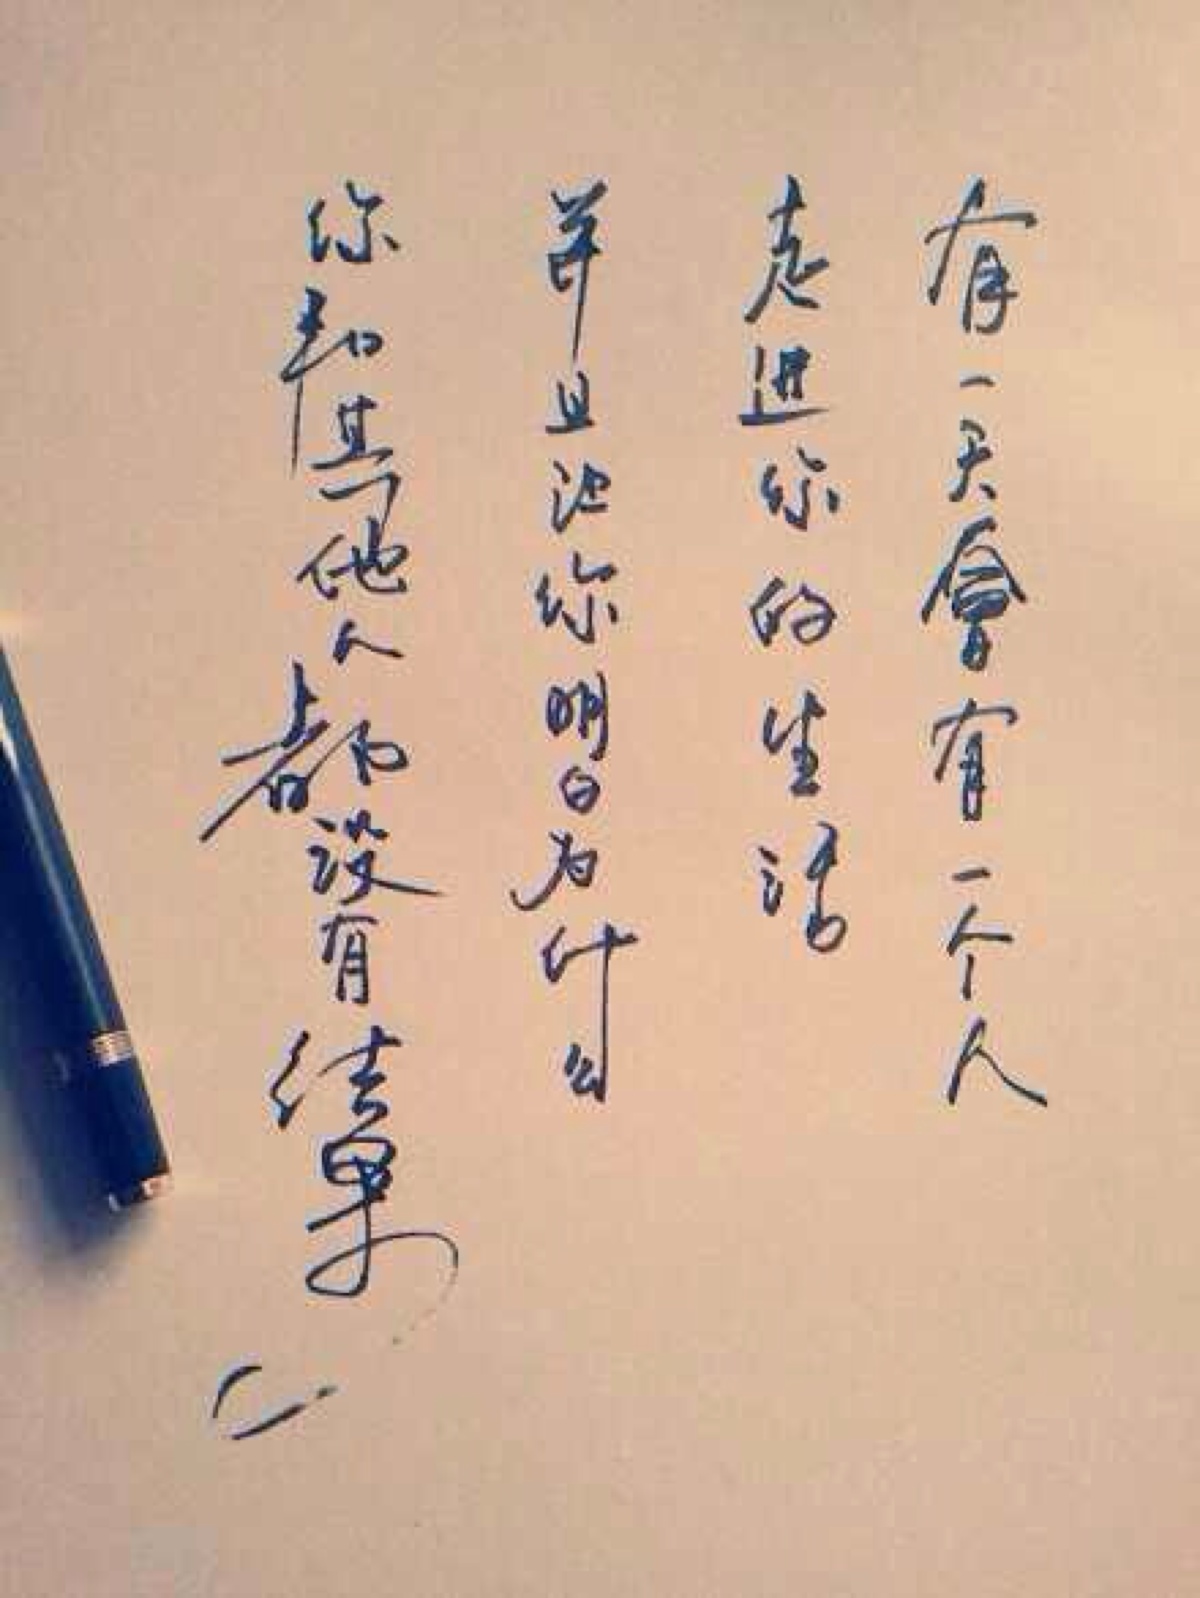 有一天會有一个人
走进你的生活
并且让你明白为什么
你和其他人都没有结果